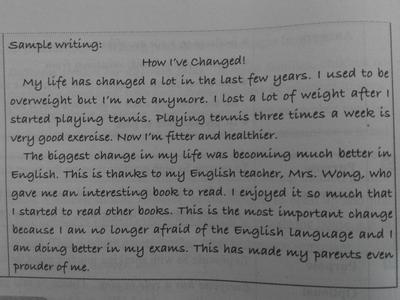 Sample writing:
How I've Changed!
My life has changed a lot in the last few years. I used to be
overweight but I'm not anymore. I lost a lot of weight after I
started playing tennis. Playing tennis three times a week is
very good exercise. Now I'm fitter and healthier.
The biggest change in my life was becoming much better in
English. This is thanks to my English teacher, Mrs. Wong, who
gave me an interesting book to read. I enjoyed it so much that
I started to read other books. This is the most important change
because I am no longer afraid of the English language and I
am doing better in my exams. This has made my parents even
prouder of me.